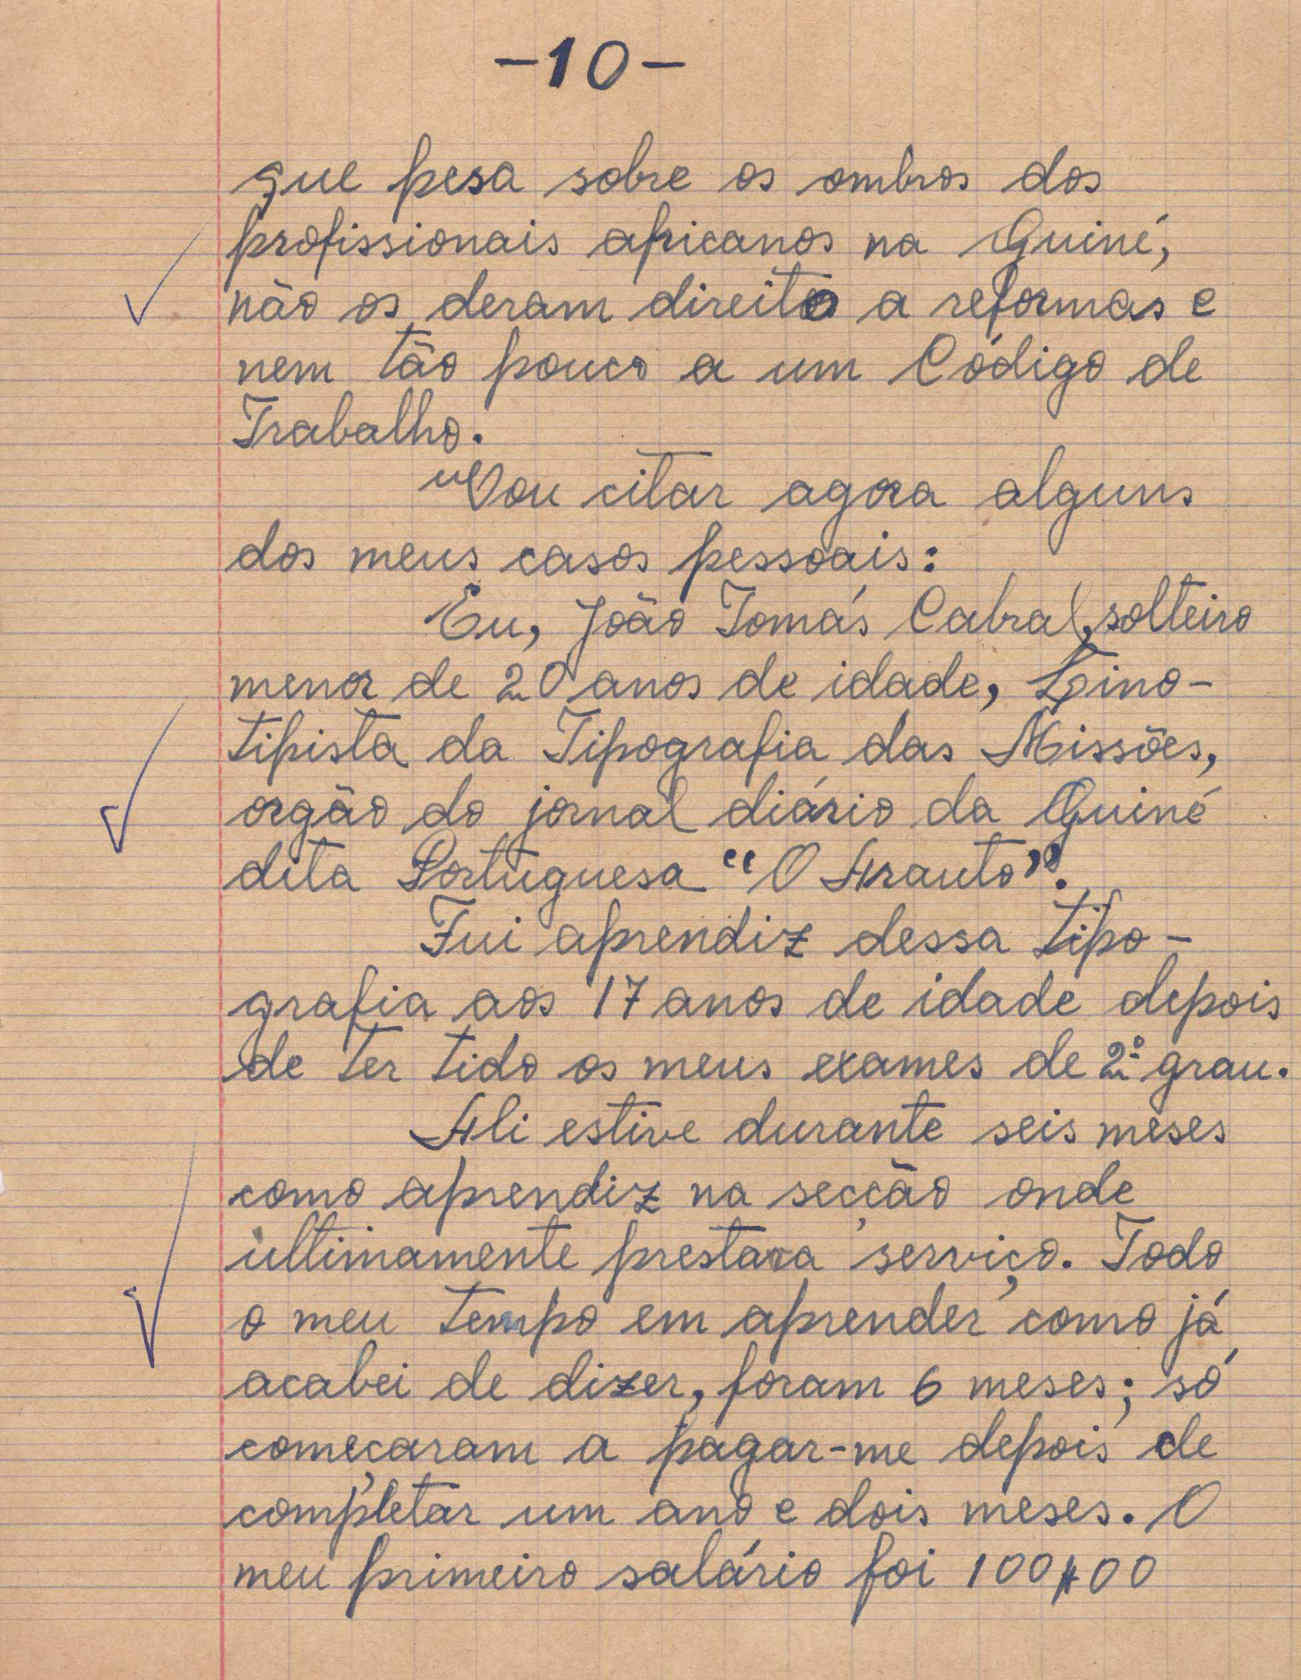 -10-
que pesa sobre os ombros dos
profissionais africanos na Guiné,
não os deram direito a reformas e
nem tão pouco a um Código de
Trabalho.
Vou citar agora alguns
dos meus casos pessoais:
Eu, João Tomás Cabral, solteiro
menor de 20 anos de idade, Lino-
tipista da Tipografia das Missões,
orgão do jornal diário da Guiné
dita Portuguesa "O Arauto".
Fui aprendiz dessa tipo-
grafia aos 17 anos de idade depois
de ter tido os meus exames de 2º grau.
Ali estive durante seis meses
como aprendiz na secção onde
ultimamente prestara serviço. Todo
o meu tempo em aprender como já
acabei de dizer, foram 6 meses; só
começaram a pagar-me depois de
completar um ano e dois meses. O
meu primeiro salário foi 100$00